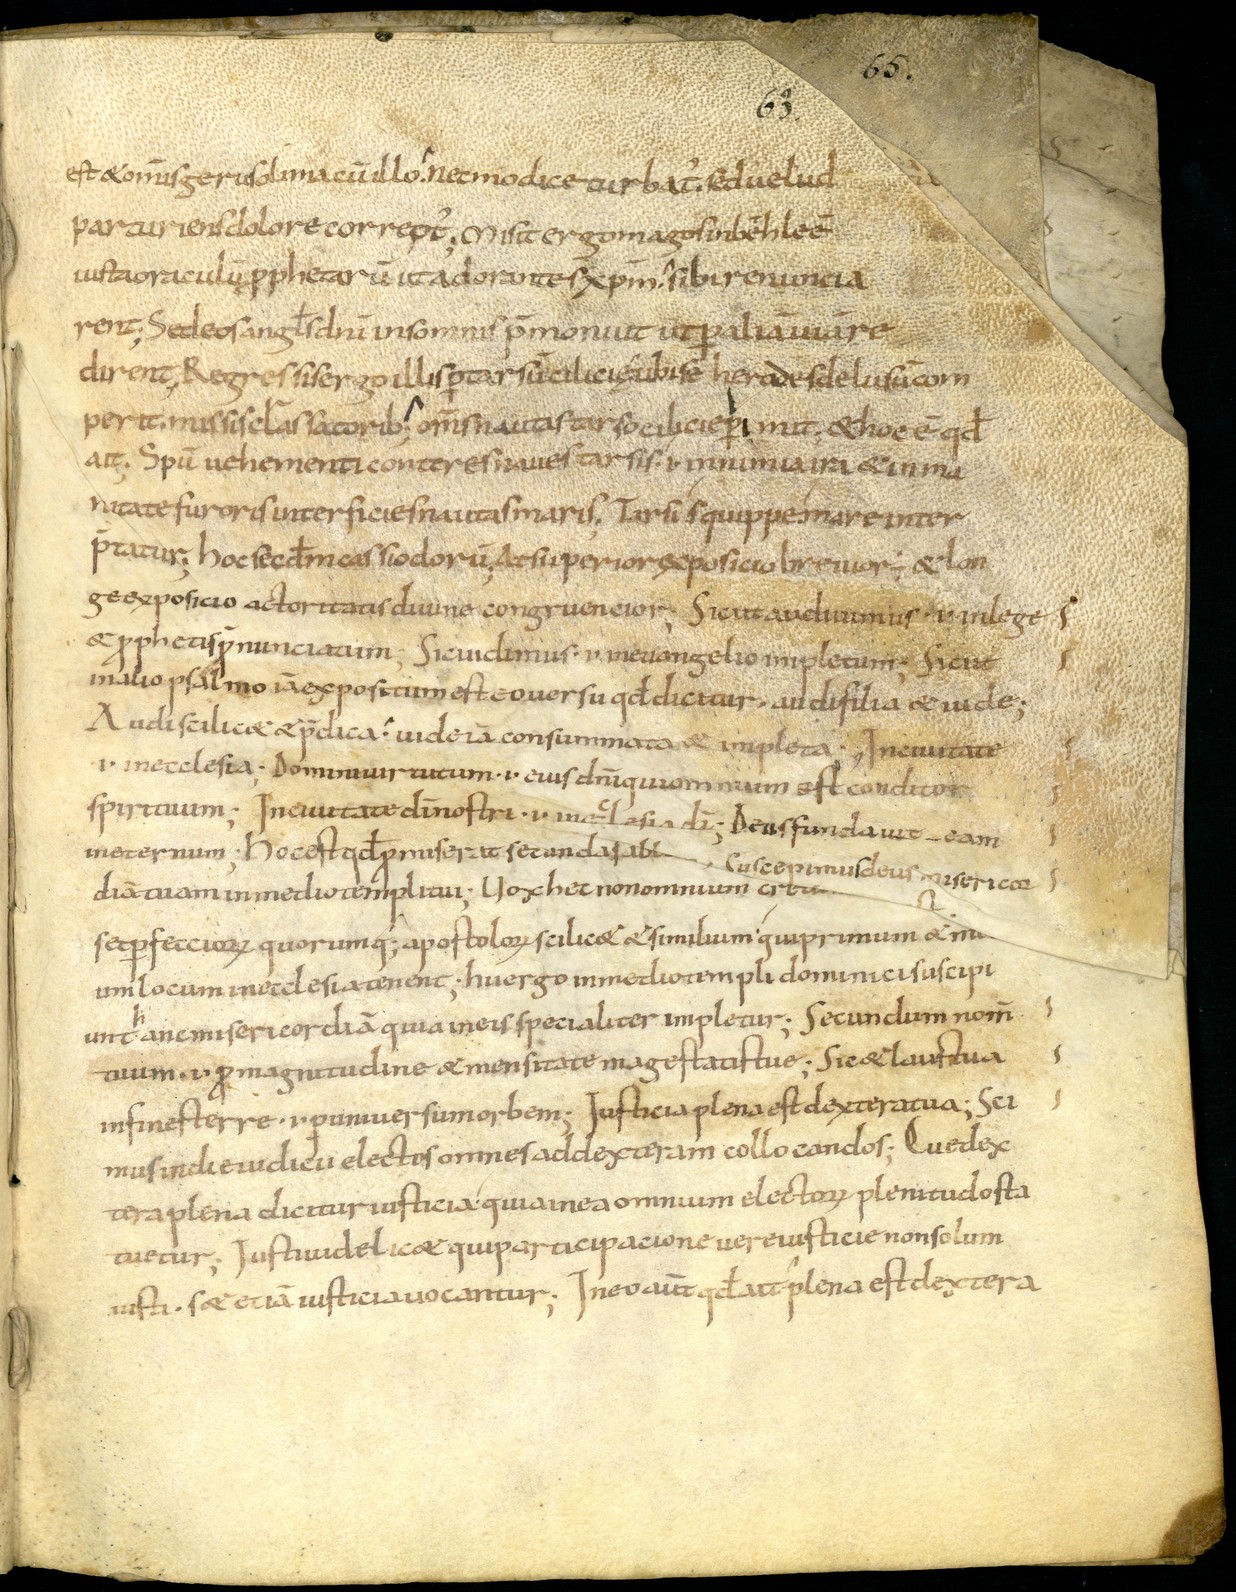 65.
63.
est & om̄is gerisolima cū illo. nec modice turbat̓. sed uelud
parturiens dolore corrept̓; Misit ergo magos in bēhleē
iusta oraculū ꝓphetarū ut adorantes xp̄m. sibi renuncia
rent; Sed eos angl̄s dn̄i in somnis p̄monuit ut ꝑ aliā uiā re
dirent; Regressis ergo illis ꝑ tarsū cilicię ubi se herodes delusū com
perit. missis classatorib; om̄s nautas tarso cilicie ꝑimit. & hoc ē qđ
ait. Spū uehementi conteres naues tarsis .v. in nimia ira & inma
nitate furoris interficies nautas maris. Tarsis quippe mare inter
p̄tatur; hoc secđm cassiodorū; At superior exposicio breuior; & lon
ge exposicio actoritatis diuine congruencior; Sicut audiuimus .v. in lege
& ꝓphetis p̄nunciatum; Sic uidimus .v. in euangelio impletum; Sicut
in alio psalmo iā expositum est eo uersu qđ dicitur. audi filia & uide;
Audi scilic& & p̄dica. uide iā consummata & impleta; In ciuitate
.v. in ecclesia; Domini uirtutum .v. eius dn̄i qui omnium est conditor
spirituum; In ciuitate dī nostri .v. in ecclesia dī; Deus fundauit eam
in eternum; Hoc est qđ ꝓmiserat secunda
Suscepimus deus misericor
diā tuam in medio templi tui; Uox hec non omnium
st.
set ꝑfeccioꝝ quorumq; apostoloꝝ scilic& & similium qui primum &
um locum in ecclesia tenent; hii ergo in medio templi dominici suscipi
unt hanc misericordiā quia in eis specialiter impletur; Secundum nom̄
tuum .v. ꝓ magnitudine & mensitate magestatis tue; Sic & laus tua
in fines terre .v. ꝑ uniuersum orbem; Iusticia plena est dextera tua; Sci
mus in die iudicii electos omnes ad dexteram collocandos; Que dex
tera plena dicitur iusticia quia in ea omnium electoꝝ plenitudo sta
tuetur; Iusti uidelic& qui participacione uere iusticie non solum
iusti. s& etiā iusticia uocantur; In eo aūt qđ ait plena est dextera